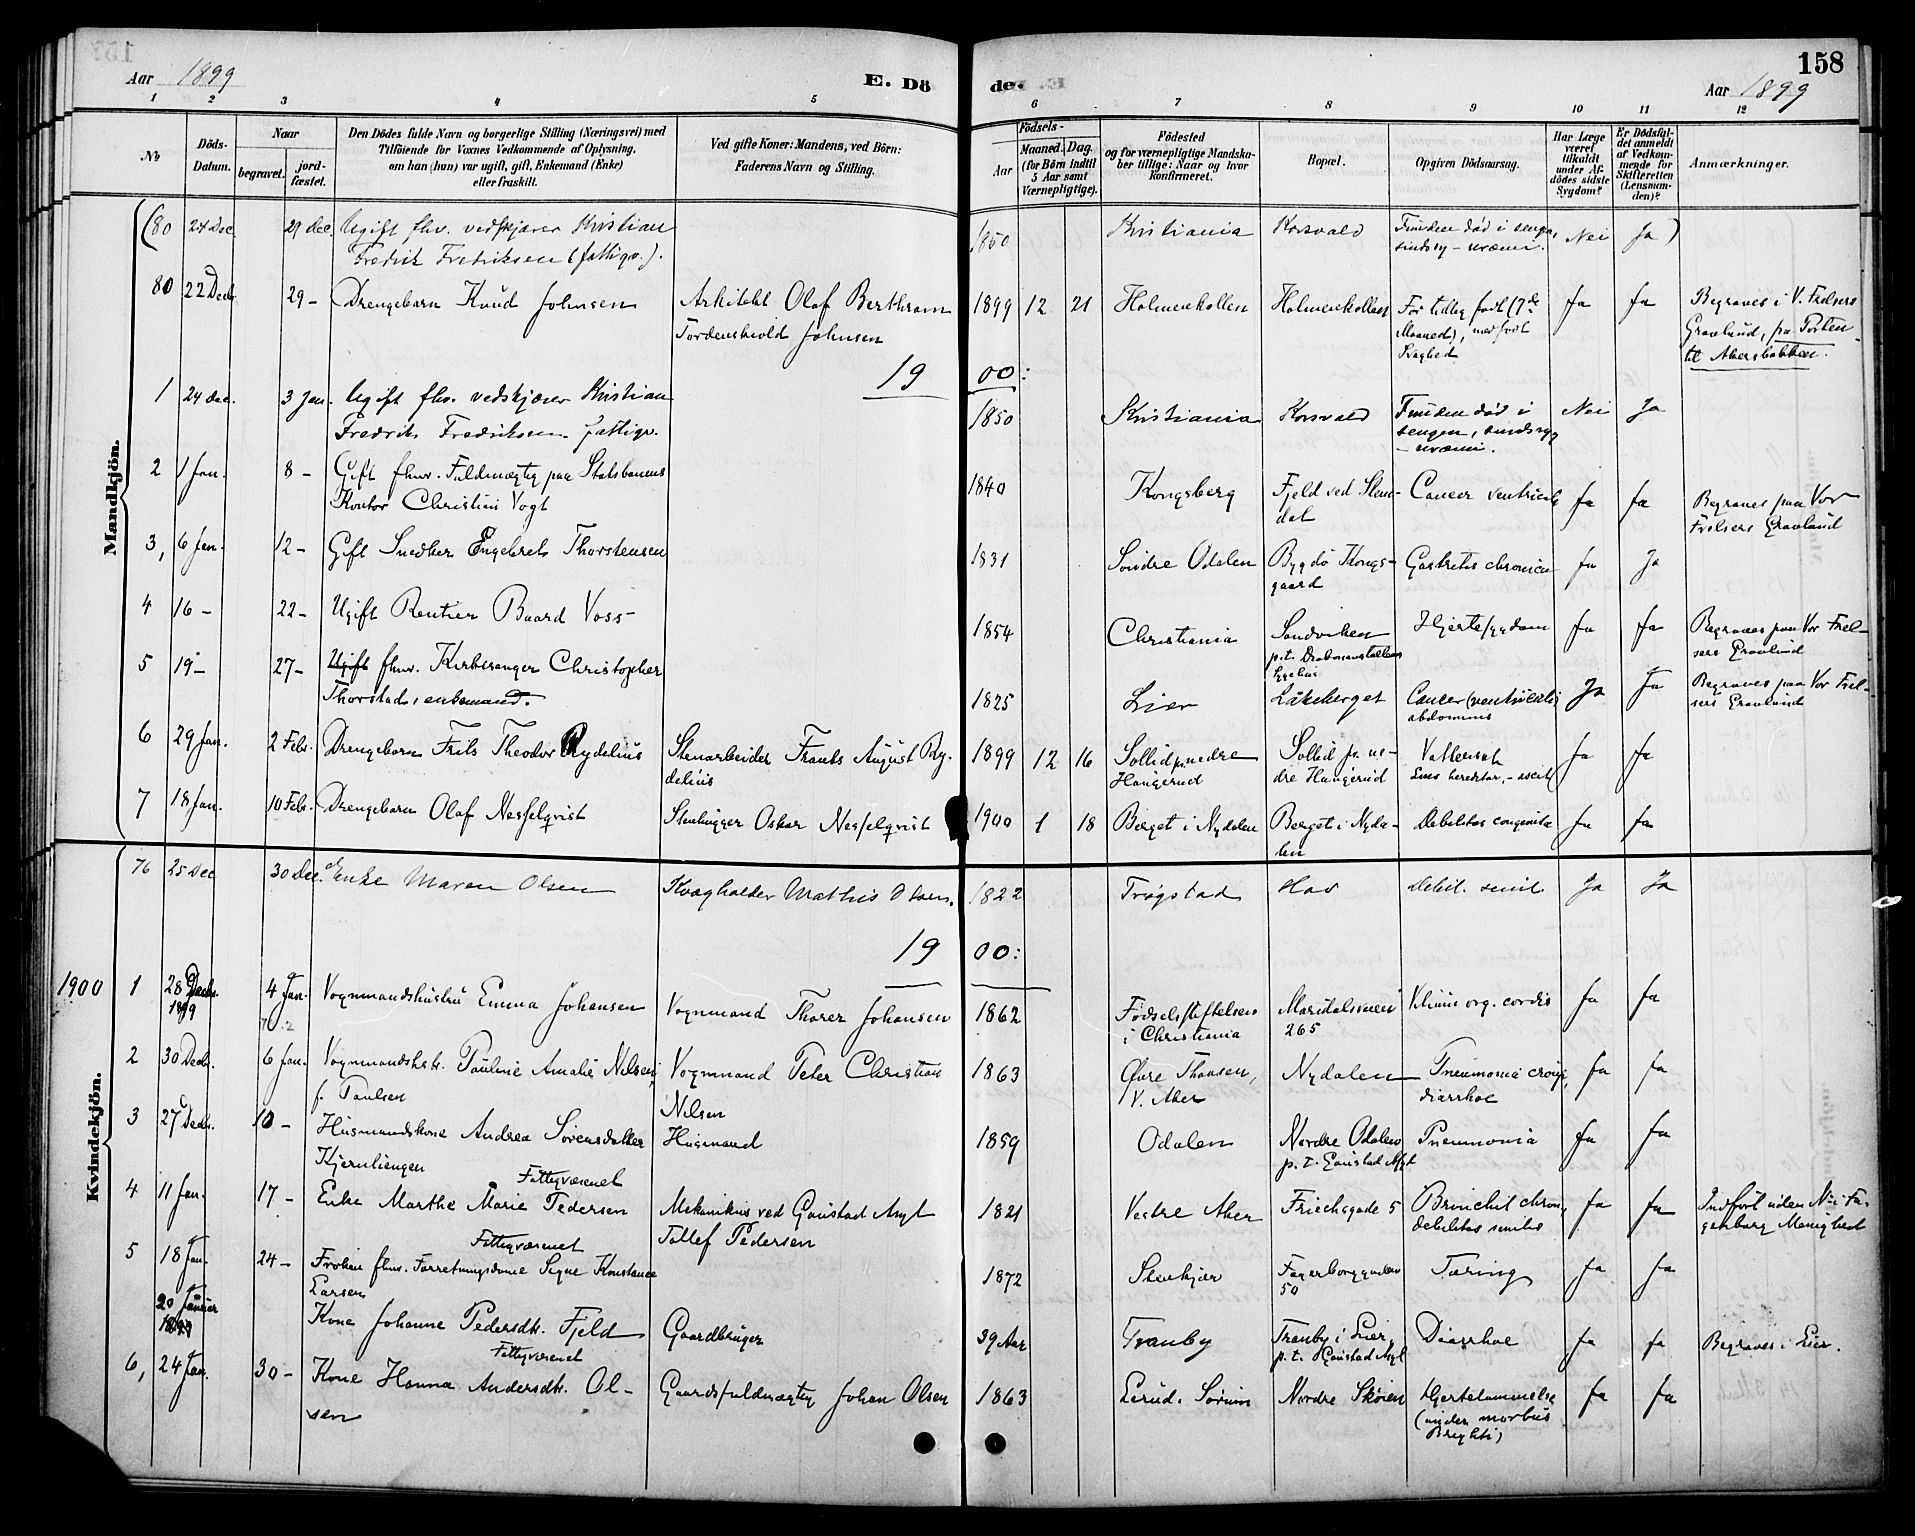 158
Aar 1899
E. Dö
de.
Aar 1899
1 2 3 4 5 6 7 8 9 10 11 12
No
Döds-Datum.
Naar
begravet.
jord-fæstet.
Den Dödes fulde Navn og borgerlige Stilling (Næringsvei) med
Tilföiende for Voxnes Vedkommende af Oplysning,
om han (hun) var ugift, gift, Enkemand (Enke)
eller fraskilt.
Ved gifte Koner: Mandens, ved Börn:
Faderens Navn og Stilling.
Födsels-
Aar
Maaned. Dag.
(for Börn indtil
5 Aar samt
Værnepligtige).
Födested
og for værnepligtige Mandska-
ber tillige: Naar og hvor
konfirmeret.
Bopæl.
Opgiven Dödsaarsag.
Har Læge
været
tilkaldt
under Af-
dödes sidste
Sygdom?
Er Dödsfal-
det anmeldt
af Vedkom-
mende for
Skifteretten
(Lensman-
den)?
Anmærkninger.
Mandkjön.
(80 24 Dec. 29 dec. Ugift fhv. vedskjærer Kristian 1850 Kristiania Korsvald Funden død i senga, Nei Ja)
Fredrik Fredriksen (fattigv.). sindssyg – uræmi.
80 22 Decbr. 29 – Drengebarn Knud Johnsen Arkitekt Olaf Berthram 1899 12 21 Holmenkollen Holmenkollen For tidlig født (7de Ja Ja Begraves i V. Frelsers
Tordenskiold Johnsen Maaned), medfødt Gravlund, paa Porten
Svaghed til Akersbakken.
1900:
1 24 dec. 3 Jan. Ugift fhv. vedskjærer Kristian 1850 Kristiania Korsvald Funden død i Nei Ja
Fredrik Fredriksen. fattigv. sengen, sindssyg
– uræmi.
2 1 Jan. 8 – Gift fhnv. Fuldmægtig paa Statsbanens 1840 Kongsberg Fjeld ved Slem- Cancer ventriculi Ja Ja Begraves paa Vor
Kontor Christian Vogt dal Frelsers Gravlund
3, 6 Jan. 12 – Gift Snedker Engebret Thorstensen 1831 Søndre Odalen Bygdø Kongs- Gastritis chronica Ja Ja
gaard
4 16 – 22 – Ugift Rentier Baard Voss – 1854 Christiania Sandviken Hjertesygdom Ja Ja Begraves paa Vor Frel-
p.t. sers Gravlund
5 19 – 27 – Ugift fhnv. Kirkesanger Christopher 1825 Lier Låkeberget Cancer (ventriculi) Ja Ja Begraves paa Vor Frel-
Thorstad, enkemand. abdominis sers Gravlund
6 29 Jan. 2 Febr. Drengebarn Frits Theodor Rydelius Stenarbeider Frants August Ry- 1899 12 16 Sollid p. nedre Sollid p. ne- Ja Ja
delius Haugerud dre Haugerud
7 18 Jan. 10 Febr. Drengebarn Olaf Nesselqvist Stenhugger Oskar Nesselqvist 1900 1 18 Berget i Nydalen Berget i Nyda- Debilitas congenita Ja Ja
len
Kvindekjön.
76 25 Dec 30 Dec. Enke Maren Olsen Kvægholder Mathis Olsen. 1822 Trøgstad Hav Debil. senil. Ja Ja
1900:
1900 1 28 Decbr. 4 Jan. Vognmandshustru Emma Johansen Vognmand Thorer Johansen 1862 Fødselsstiftelsen Maridalsveien Vitium org. cordis Ja Ja
1899 i Christiania 265
2 30 Decbr. 6 Jan. Vognmandshstr. Pauline Amalie Nilsen Vognmand Peter Christian 1863 Øvre Thaasen, Nydalen Pneumonia croup, Ja Ja
f. Paulsen Nilsen V. Aker diarrhoe
3 27 Decbr. 10 – Husmandskone Andrea Sørensdatter Husmand 1859 Odalen Nordre Odalen Pneumonia Ja Ja
Kjernliengen p.t. Gaustad Asyl
Fattigvæsenet
4 11 Jan. 17 – Enke Marthe Marie Pedersen Mekanikus ved Gaustad Asyl 1821 Vestre Aker Friechsgade 5 Bronchit chron, Ja Ja Indført uden No i Fa-
Tollef Pedersen debilitas senilis gerborg Menighed
Fattigvæsenet
5 18 Jan. 24 – Frøken fhnv. Forretningsdame Signe Konstance 1872 Stenkjær Fagerborggaden Tæring Ja Ja
Larsen 50
20 Januar Kone Johanne Pedersdtr. Fjeld Gaardbruger 39 Aar Tranby Tranby i Lier, Diarrhoe Ja Ja Begraves i Lier.
1899 p.t. Gaustad Asyl
Fattigvæsenet
6, 24 Jan. 30 – Kone Hanna Andersdtr. Ol- Gaardsfuldmægtig Johan Olsen 1863 Lerud. Sørum Nordre Skøien Hjertelammelse Ja Ja
sen (under morbus
Brighti)